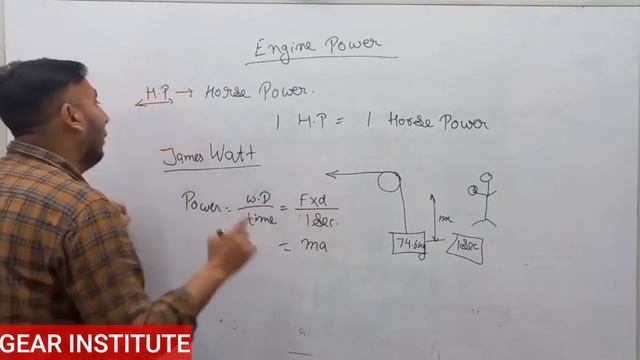 Engine Power
H.P → Horse Power.
1 H.P = 1 Horse Power
James Watt
Power = W.D / time = F x d / 1 Sec.
= ma
m
1 Sec
GEAR INSTITUTE